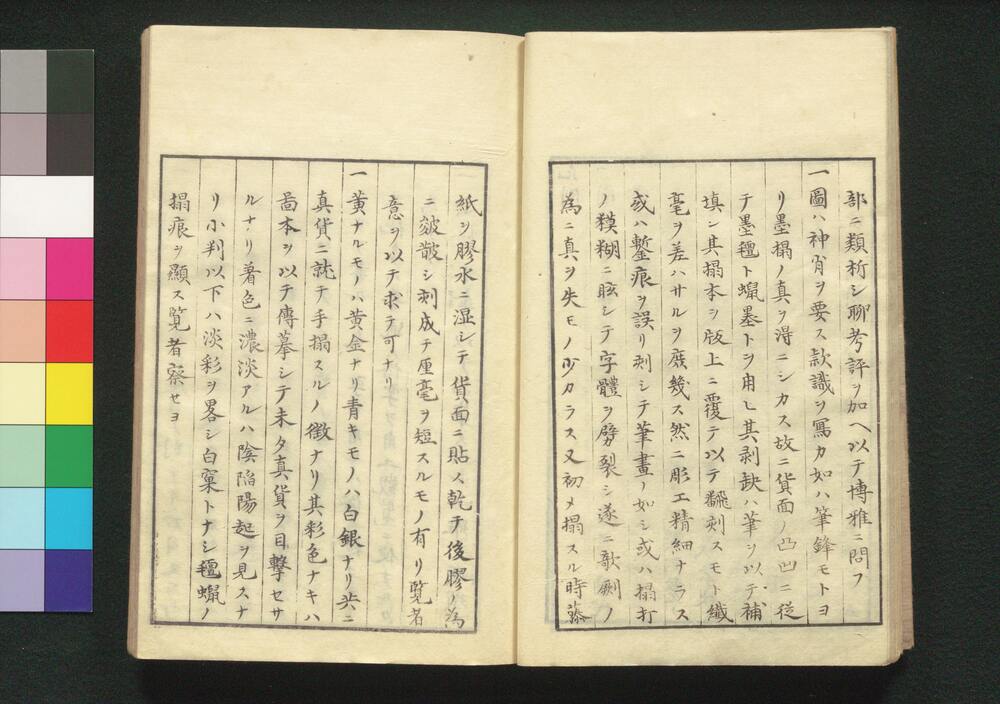 部ニ類析シ聊考評ヲ加ヘ以テ博雅ニ問フ
一圖ハ神肖ヲ要ス款識ヲ寫カ如ハ筆鋒モトヨ
リ墨搨ノ真ヲ得ニシカス故ニ貨面ノ凸凹ニ従
テ墨氊ト蝋墨トヲ用ヒ其剥缺ハ筆ヲ以テ補
填シ其搨本ヲ版上ニ覆テ以テ飜刻スモト纎
毫ヲ差ハサルヲ庶幾ス然ニ彫工精細ナラス
或ハ鏨痕ヲ誤リ刺シテ筆畫ノ如シ或ハ搨打
ノ糢糊ニ眩シテ字體ヲ劈裂シ遂ニ欹劂ノ
為ニ真ヲ失モノ少カラス又初メ搨スル時藤
紙ヲ膠水ニ湿シテ貨面ニ貼ス乾テ後膠ノ為
ニ皴皵シ刻成テ厘毫ヲ短スルモノ有リ覧者
意ヲ以テ求テ可ナリ
一黄ナルモノハ黄金ナリ青キモノハ白銀ナリ共ニ
真貨ニ就テ手搨スルノ徴ナリ其彩色ナキハ
啚本ヲ以テ傳摹シテ未タ真貨ヲ目撃セサ
ルナリ着色ニ濃淡アルハ陰陷陽起ヲ見スナ
リ小判以下ハ淡彩ヲ畧シ白窠トナシ氊蝋ノ
搨痕ヲ顯ス覧者察セヨ